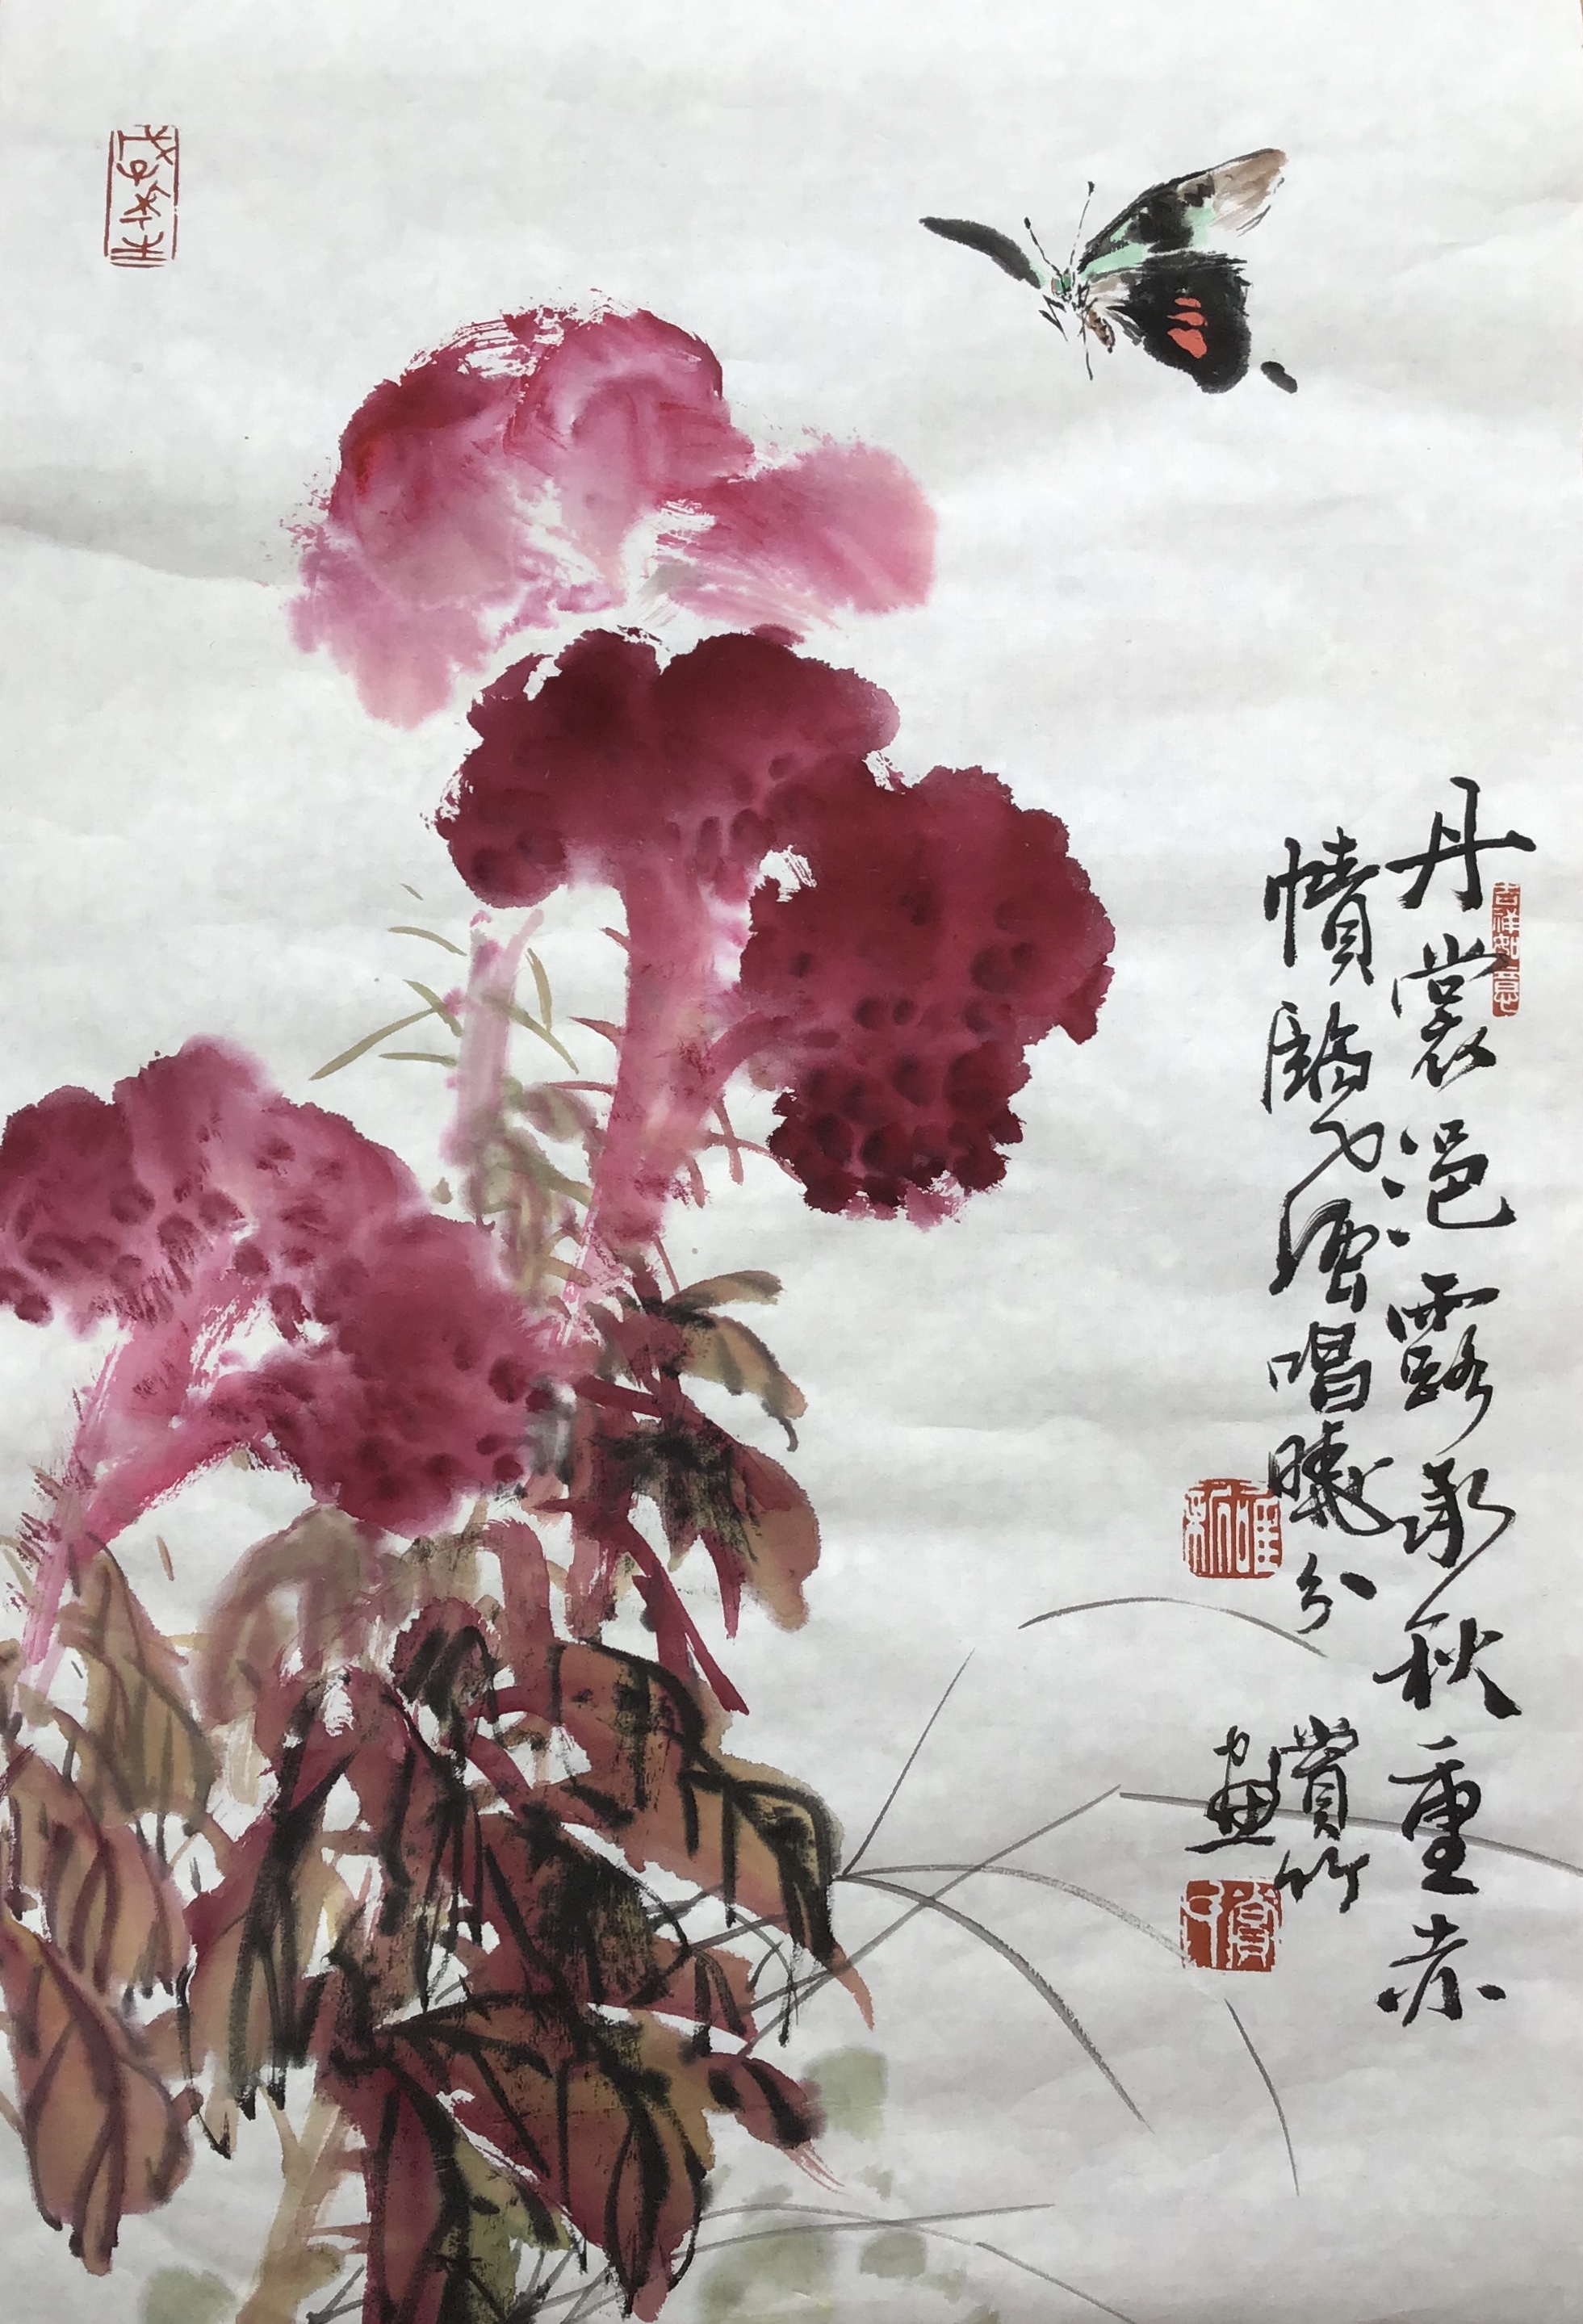 丹裳浥露承秋重赤
幘臨風唱曉分 賞竹
畫
吉祥如意